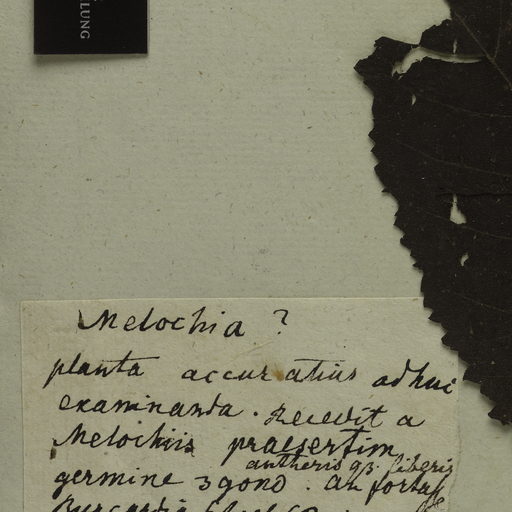 LUNG
Melochia ?
planta accuratius adhuc
examinanda. Recedit a
Melochiis praesertim
antheris qz. liberis
germine 3gono. an fortasse